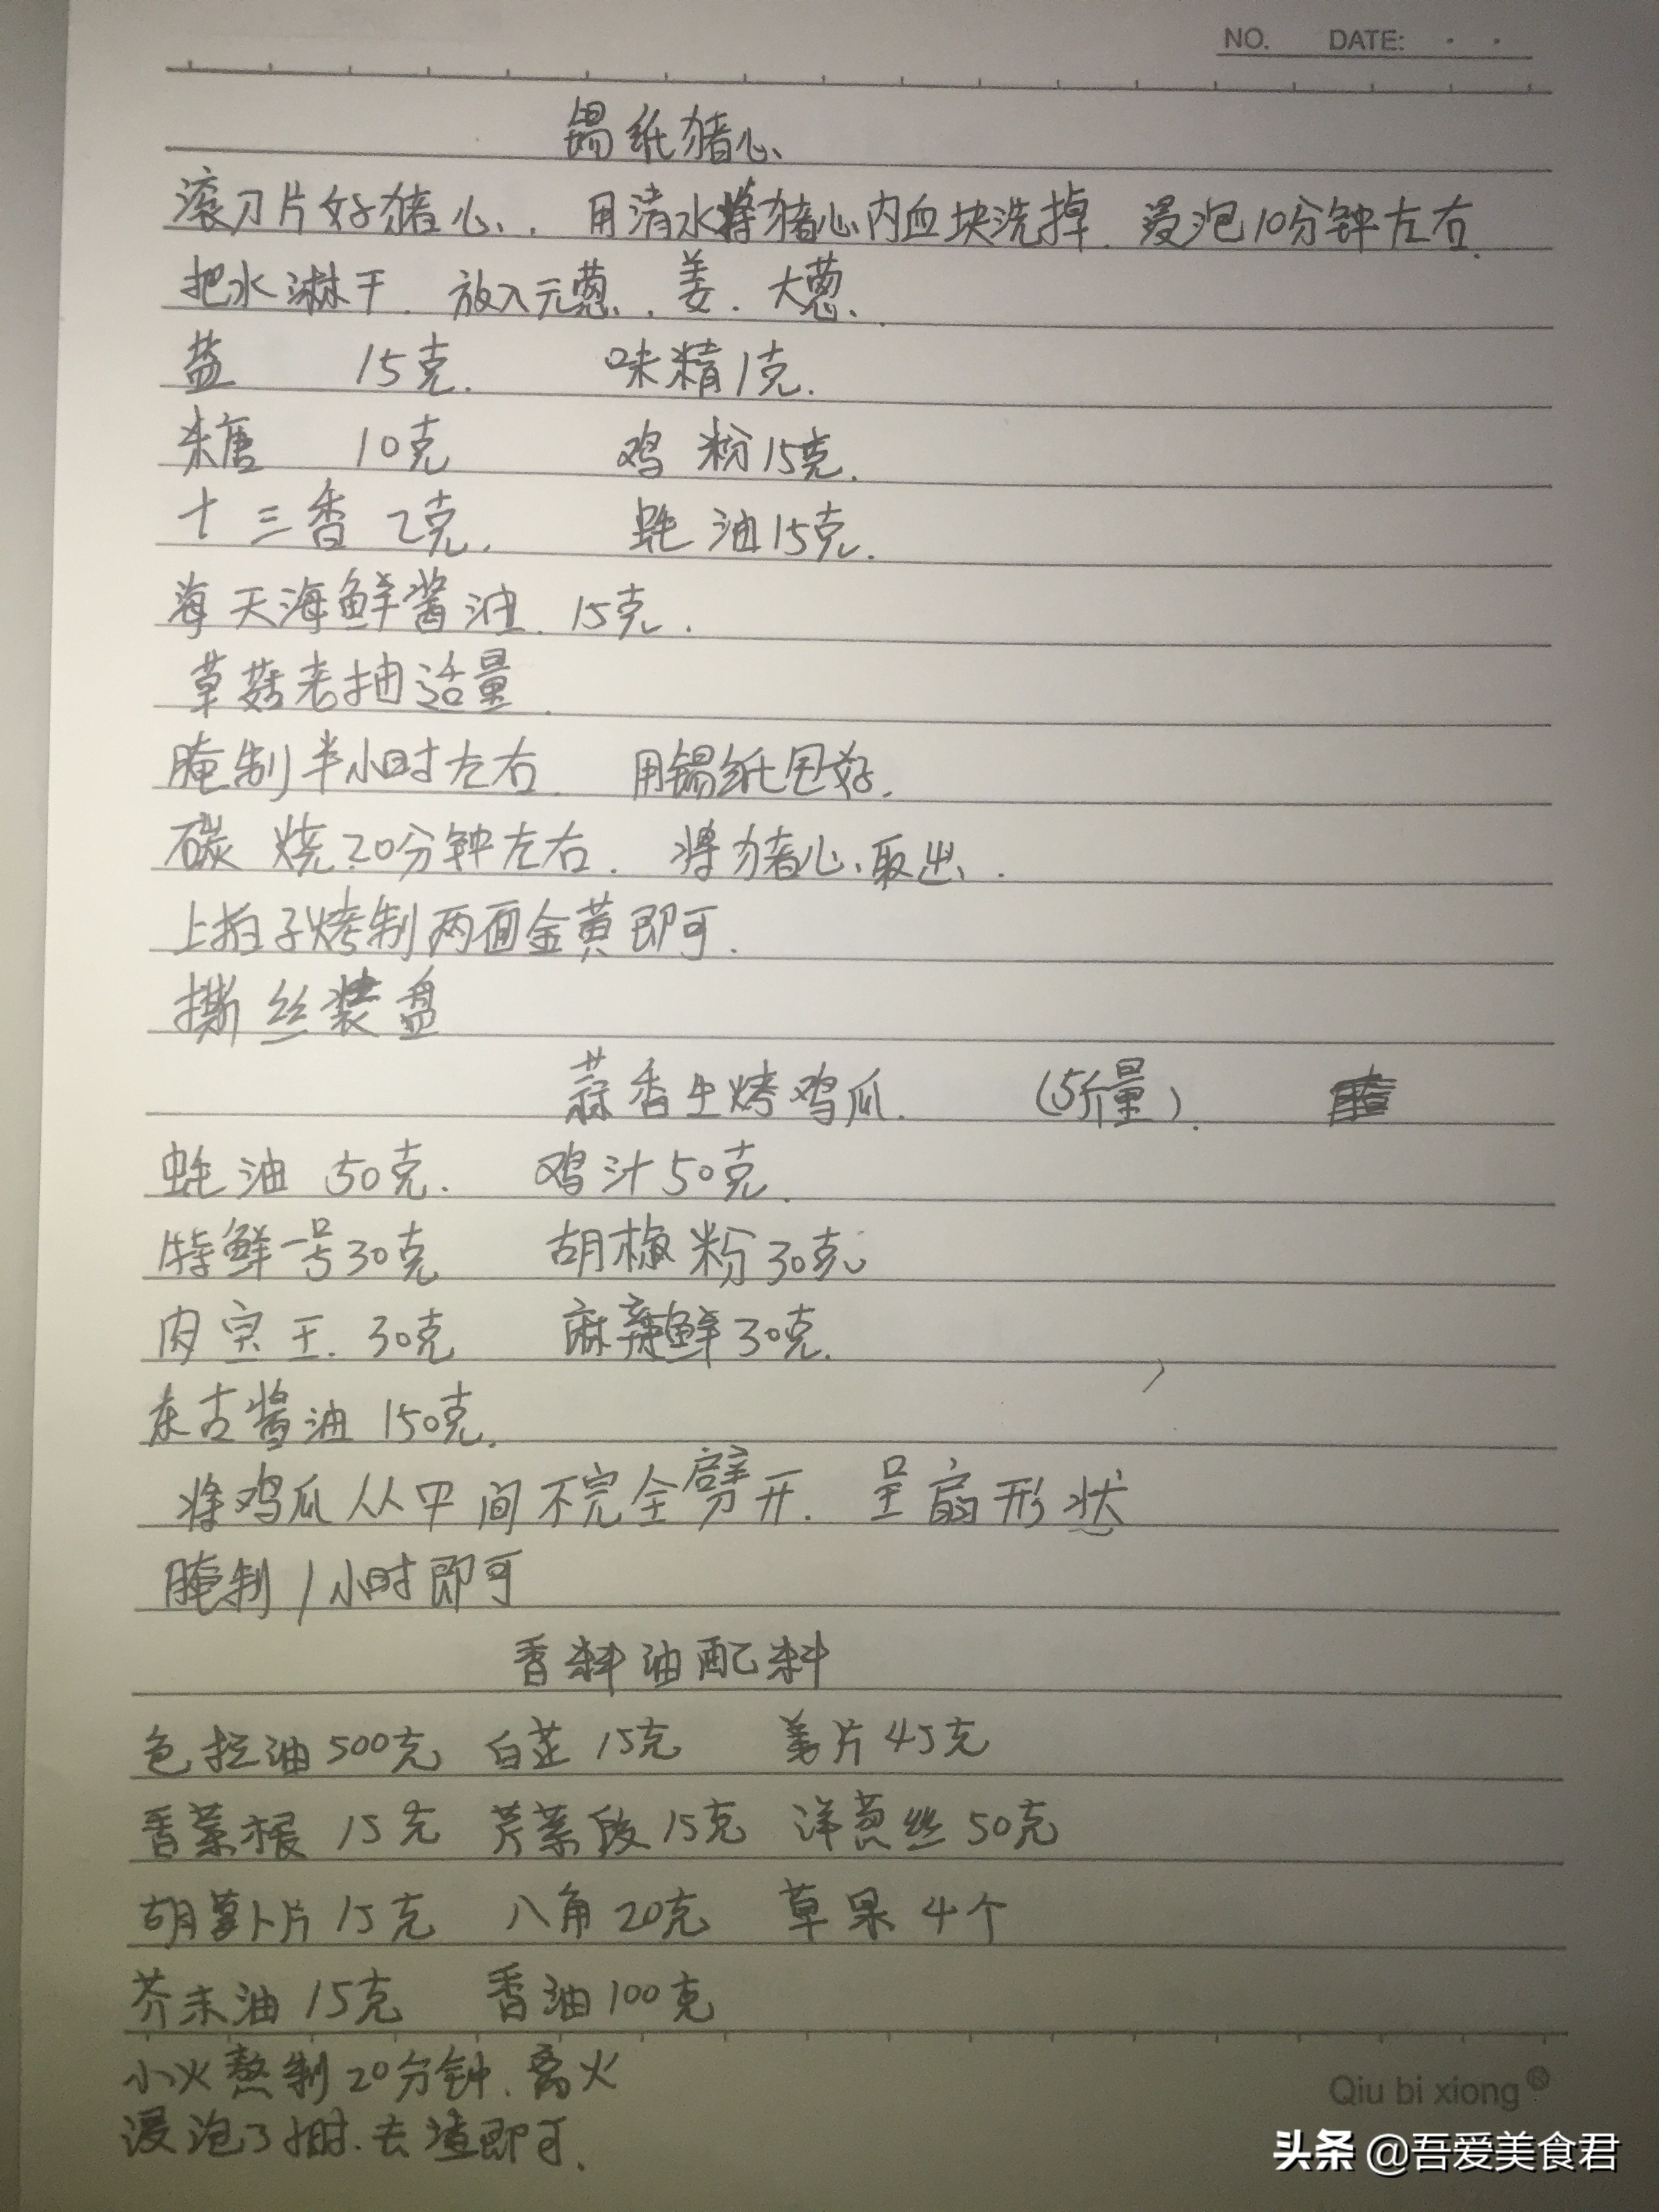 NO. DATE:
锡纸猪心
滚刀片好猪心. 用清水将猪心内血块洗掉. 浸泡10分钟左右.
把水淋干. 放入元葱. 姜. 大葱.
盐 15克. 味精1克.
糖 10克 鸡粉15克.
十三香 2克. 蚝油15克.
海天海鲜酱油. 15克.
草菇老抽适量.
腌制半小时左右. 用锡纸包好.
碳烧20分钟左右. 将猪心取出.
上拍子烤制两面金黄即可.
撕丝装盘
蒜香生烤鸡爪. (5斤量).
蚝油 50克. 鸡汁50克.
特鲜一号30克 胡椒粉30克
肉宝王. 30克 麻辣鲜30克.
东古酱油 150克.
将鸡爪从中间不完全劈开. 呈扇形状
腌制1小时即可
香料油配料
色拉油500克 白芷15克 姜片45克
香菜根 15克 芹菜段15克 洋葱丝50克
胡萝卜片15克 八角20克 草果4个
芥末油15克 香油100克
小火熬制20分钟. 离火
浸泡3小时. 去渣即可.
Qiu bi xiong®
头条 @吾爱美食君